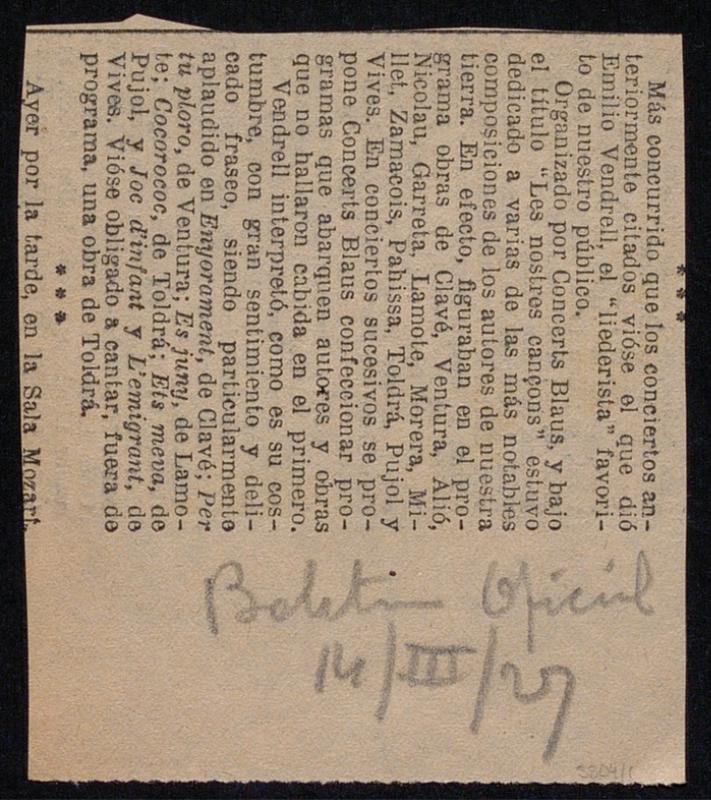 * * *
Más concurrido que los conciertos an-
teriormente citados vióse el que dió
Emilio Vendrell, el "liederista" favori-
to de nuestro público.
Organizado por Concerts Blaus, y bajo
el título "Les nostres cançons" estuvo
dedicado a varias de las más notables
composiciones de los autores de nuestra
tierra. En efecto, figuraban en el pro-
grama obras de Clavé, Ventura, Alió,
Nicolau, Garreta, Lamote, Morera, Mi-
llet, Zamacois, Pahissa, Toldrá, Pujol y
Vives. En conciertos sucesivos se pro-
pone Concerts Blaus confeccionar pro-
gramas que abarquen autores y obras
que no hallaron cabida en el primero.
Vendrell interpretó, como es su cos-
tumbre, con gran sentimiento y deli-
cado fraseo, siendo particularmente
aplaudido en Enyorament, de Clavé; Per
tu ploro, de Ventura; Es juny, de Lamo-
te; Cocorococ, de Toldrá; Ets meva, de
Pujol, y Joc d'infant y L'emigrant, de
Vives. Vióse obligado a cantar, fuera de
programa, una obra de Toldrá.
* * *
Ayer por la tarde, en la Sala Mozart,
Boletin Oficial
14/III/27